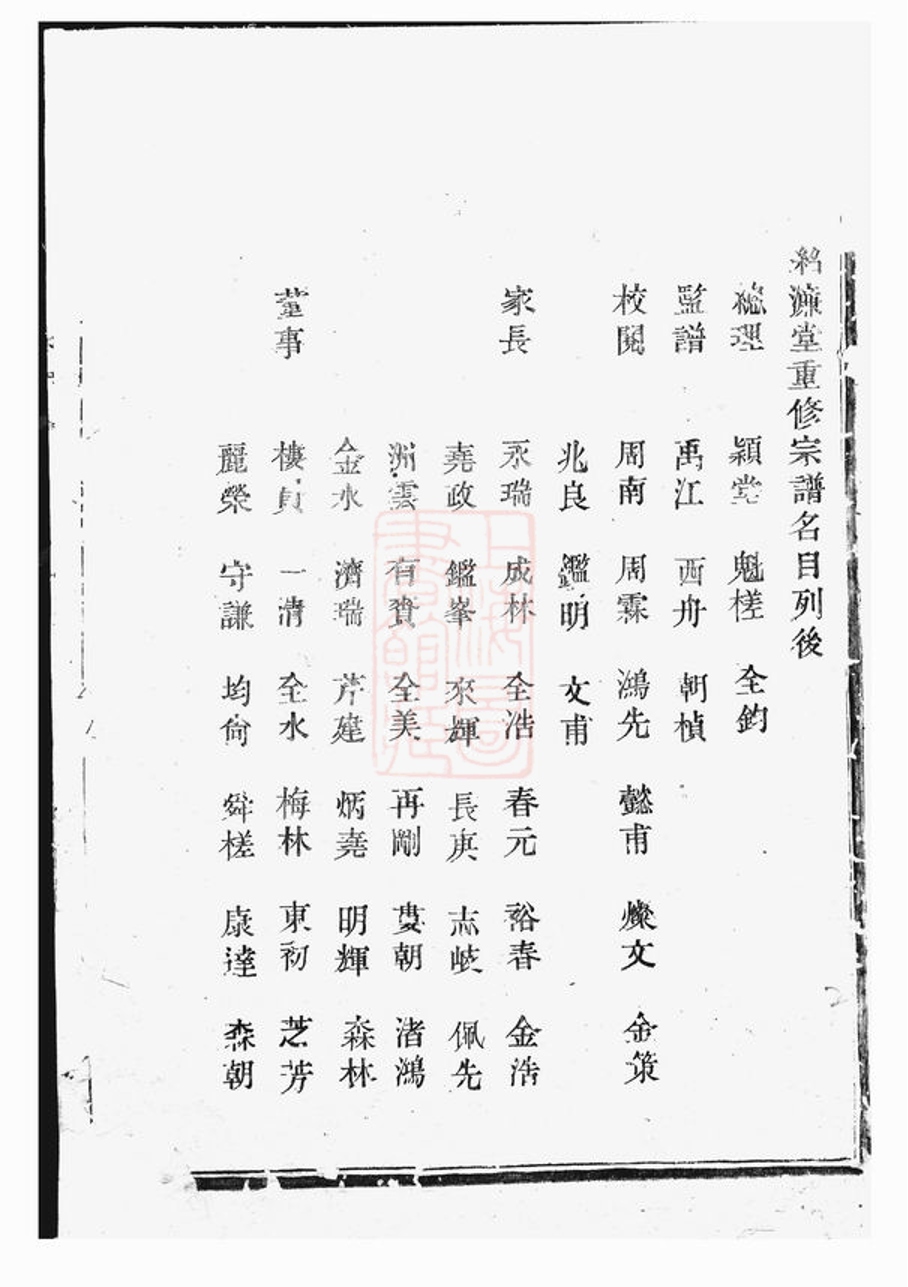 紹濂堂重修宗譜名目列後
總理 穎堂 魁槎 全鈞
監譜 禹江 西舟 朝楨
校閱 周南 周霖 鴻先 懿甫 燦文 金策
兆良 鑑明 文甫
家長 永瑞 成林 全浩 春元 裕春 金浩
堯政 鑑峯 來輝 長庚 志岐 佩先
洲雲 有賚 全美 再剛 蔓朝 渚鴻
金水 濟瑞 芹建 炳堯 明輝 森林
董事 棲貞 一清 全水 梅林 東初 芝芳
麗榮 守謙 均尙 舜槎 康達 森朝
上海圖書館藏